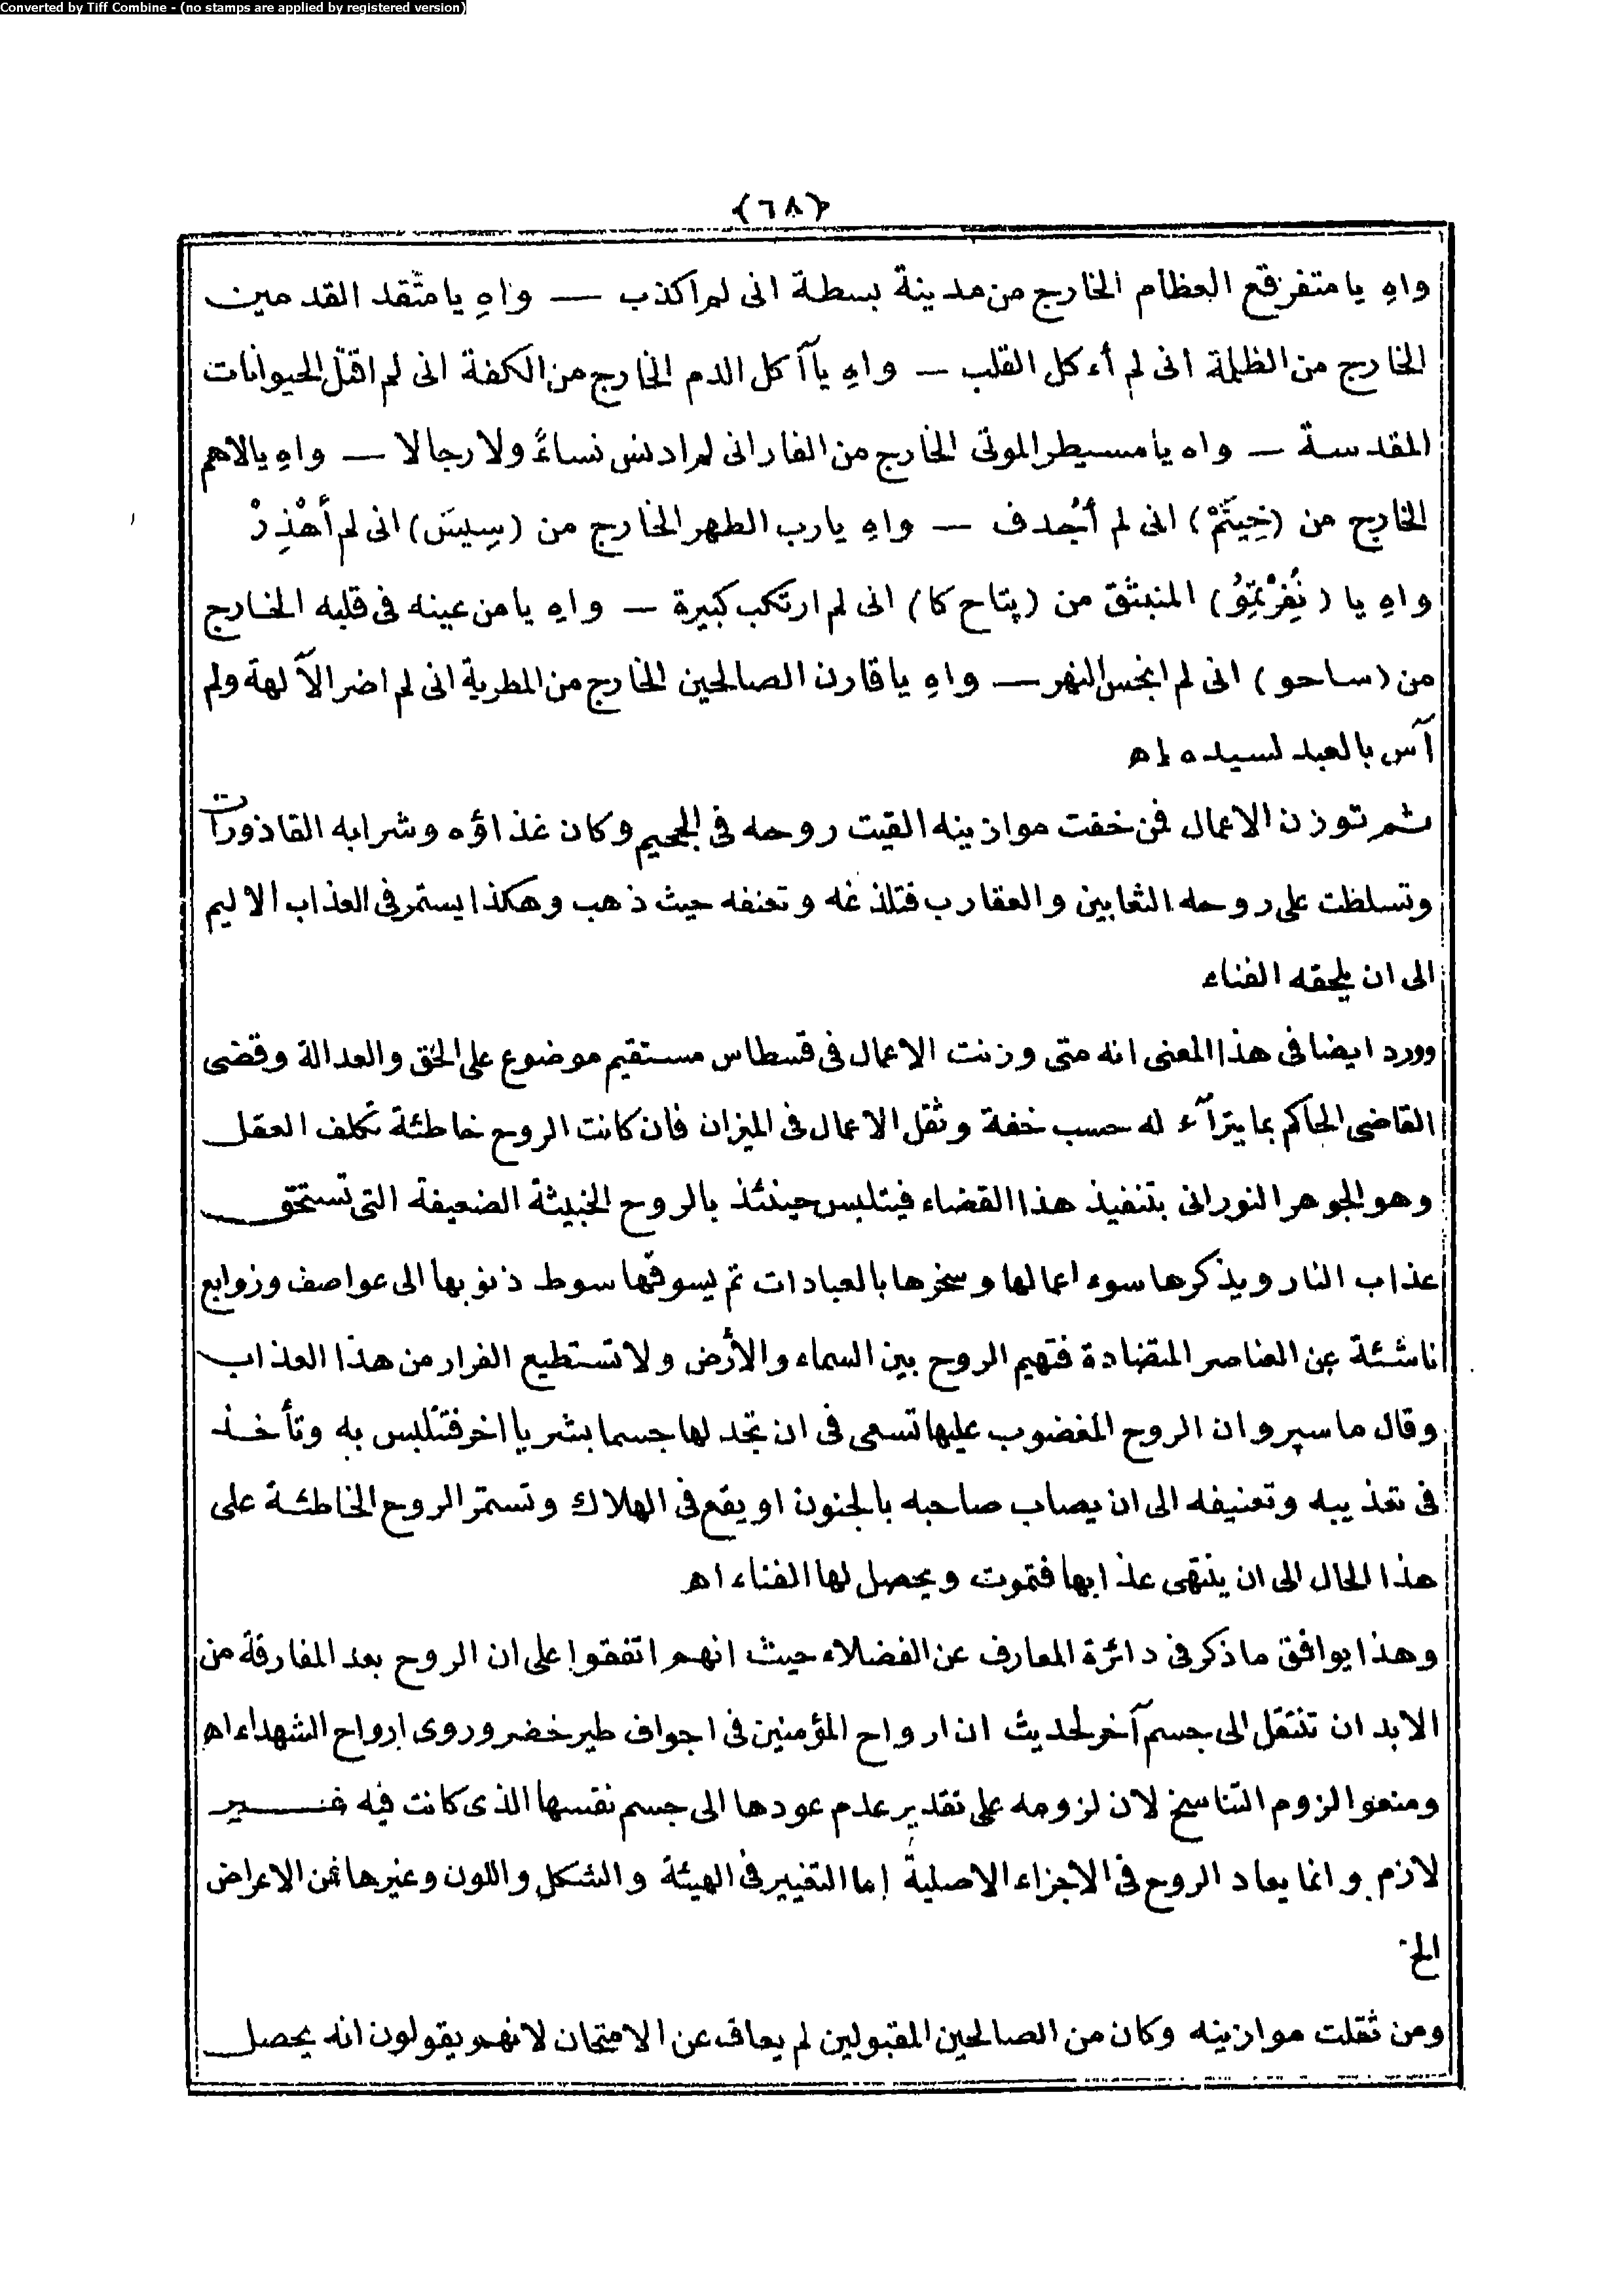 Converted by Tiff Combine - (no stamps are applied by registered version)
﴿٦٨﴾
واهِ يا متفرقع العظام الخارج من مدينة بسطة انى لم اكذب — واهِ يا متّقد القدمين
الخارج من الظلمة انى لم أءكل القلب — واهِ يا آكل الدم الخارج من الكفة انى لم اقتل الحيوانات
المقدسة — واه يا مسيطر الموتى الخارج من الغار انى لم ادنس نساءً ولا رجالا — واهِ يا
الخارج من (خِيتَمْ) انى لم أُجدف — واهِ يارب الطهر الخارج من (سِيسَ) انى لم أهْذِرْ
واهِ يا (نُفِرْتِمُو) المنبثق من (پتاح كا) انى لم ارتكب كبيرة — واهِ يا من عينه فى قلبه الخارج
من (ساحو) انى لم انجس النهر — واهِ يا قارن الصالحين الخارج من المطرية انى لم اضر الآلهة ولم
آس بالعبد لسيده اه
ثم توزن الاعمال فمن خفت موازينه القيت روحه فى الجحيم وكان غذاؤه وشرابه القاذورات
وتسلطت على روحه الثعابين والعقارب فتلذغه وتعنفه حيث ذهب وهكذا يستمر فى العذاب الاليم
الى ان يلحقه الفناء
وورد ايضا فى هذا المعنى انه متى وزنت الاعمال فى قسطاس مستقيم موضوع على الحق والعدالة وقضى
القاضى الحاكم بما يترآء له حسب خفة وثقل الاعمال فى الميزان فان كانت الروح خاطئة تكلف العقل
وهو الجوهر النورانى بتنفيذ هذا القضاء فيتلبس حينئذ بالروح الخبيثة الضعيفة التى تستحق
عذاب النار ويذكرها سوء اعمالها وسخرها بالعبادات ثم يسوقها سوط ذنوبها الى عواصف وزوابع
ناشئة عن العناصر المتضادة فتهيم الروح بين السماء والأرض ولا تستطيع الفرار من هذا العذاب
وقال ماسپرو ان الروح المغضوب عليها تسعى فى ان تجد لها جسما بشريا اخر فتتلبس به وتأخذ
فى تعذيبه وتعنيفه الى ان يصاب صاحبه بالجنون او يقع فى الهلاك وتستمر الروح الخاطئة على
هذا الحال الى ان ينتهى عذابها فتموت ويحصل لها الفناء اه
وهذا يوافق ما ذكر فى دائرة المعارف عن الفضلاء حيث انهم اتفقوا على ان الروح بعد المفارقة من
الابدان تنتقل الى جسم آخر لحديث ان ارواح المؤمنين فى اجواف طير خضر وروى ارواح الشهداء اه
ومنعوا لزوم التناسخ لان لزومه على تقدير عدم عودها الى جسم نفسها الذى كانت فيه غير
لازم وانما يعاد الروح فى الاجزاء الاصلية اما التغيير فى الهيئة والشكل واللون وغيرها فمن الاعراض
الخ
ومن ثقلت موازينه وكان من الصالحين المقبولين لم يعاف عن الامتحان لانهم يقولون انه يحصل